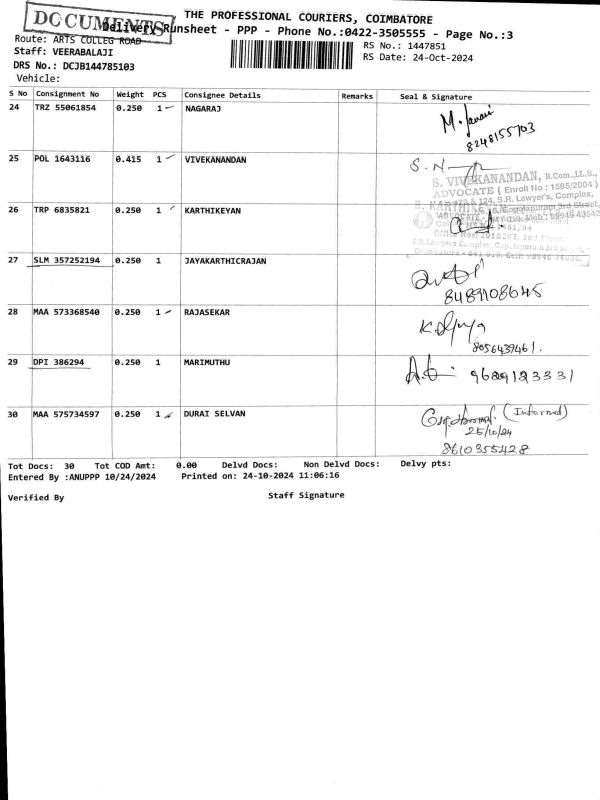 DOCUMENTS
THE PROFESSIONAL COURIERS, COIMBATORE
Delivery Runsheet - PPP - Phone No.:0422-3505555 - Page No.:3
Route: ARTS COLLEG ROAD
RS No.: 1447851
Staff: VEERABALAJI
RS Date: 24-Oct-2024
DRS No.: DCJB144785103
Vehicle:
S No Consignment No Weight PCS Consignee Details Remarks Seal & Signature
24 TRZ 55061854 0.250 1 NAGARAJ
8248155703
25 POL 1643116 0.415 1 VIVEKANANDAN
S. VIVEKANANDAN, B.Com.,LL.B.,
ADVOCATE ( Enroll No : 1585/2004 )
S.R. Lawyer's, Complex,
26 TRP 6835821 0.250 1 KARTHIKEYAN
27 SLM 357252194 0.250 1 JAYAKARTHICRAJAN
8489108645
28 MAA 573368540 0.250 1 RAJASEKAR
8056439461.
29 DPI 386294 0.250 1 MARIMUTHU
9629123331
30 MAA 575734597 0.250 1 DURAI SELVAN
(Informed)
25/10/24
8610355428
Tot Docs: 30 Tot COD Amt: 0.00 Delvd Docs: Non Delvd Docs: Delvy pts:
Entered By :ANUPPP 10/24/2024 Printed on: 24-10-2024 11:06:16
Verified By Staff Signature